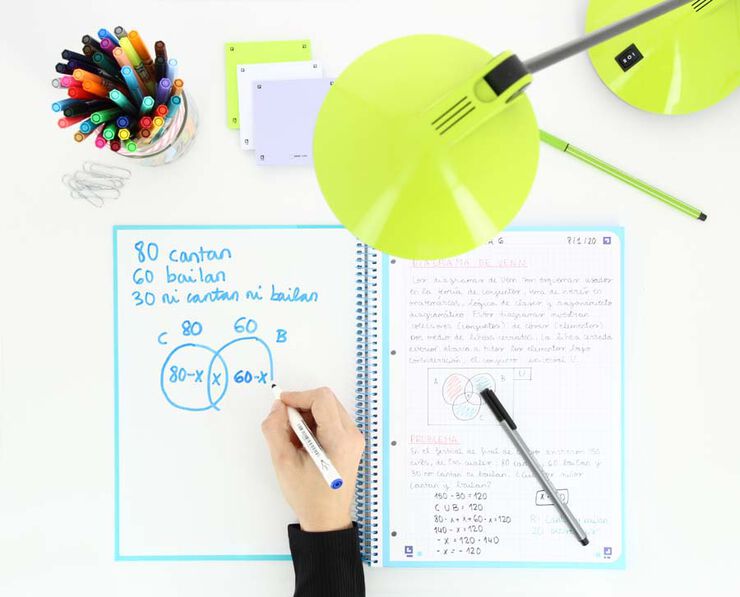 80 cantan
60 bailan
30 ni cantan ni bailan
C 80 60 B
80-x x 60-x
7/1/20
DIAGRAMA DE VENN
Los diagramas de Venn son esquemas usados
en la teoría de conjuntos,
matemáticas, lógica de clases y razonamiento
diagramático. Estos diagramas muestran
colecciones (conjuntos) de cosas (elementos)
por medio de líneas cerradas. La línea cerrada
exterior abarca a todos los elementos bajo
consideración, el conjunto universal U.
A B U
C
PROBLEMA
Si el festival de final de
80 60 bailan y
30 no cantan ni bailan.
cantan y bailan?
150 - 30 = 120
C U B = 120
80 - x + x + 60 - x = 120
140 - x = 120
- x = 120 - 140
- x = - 120
20